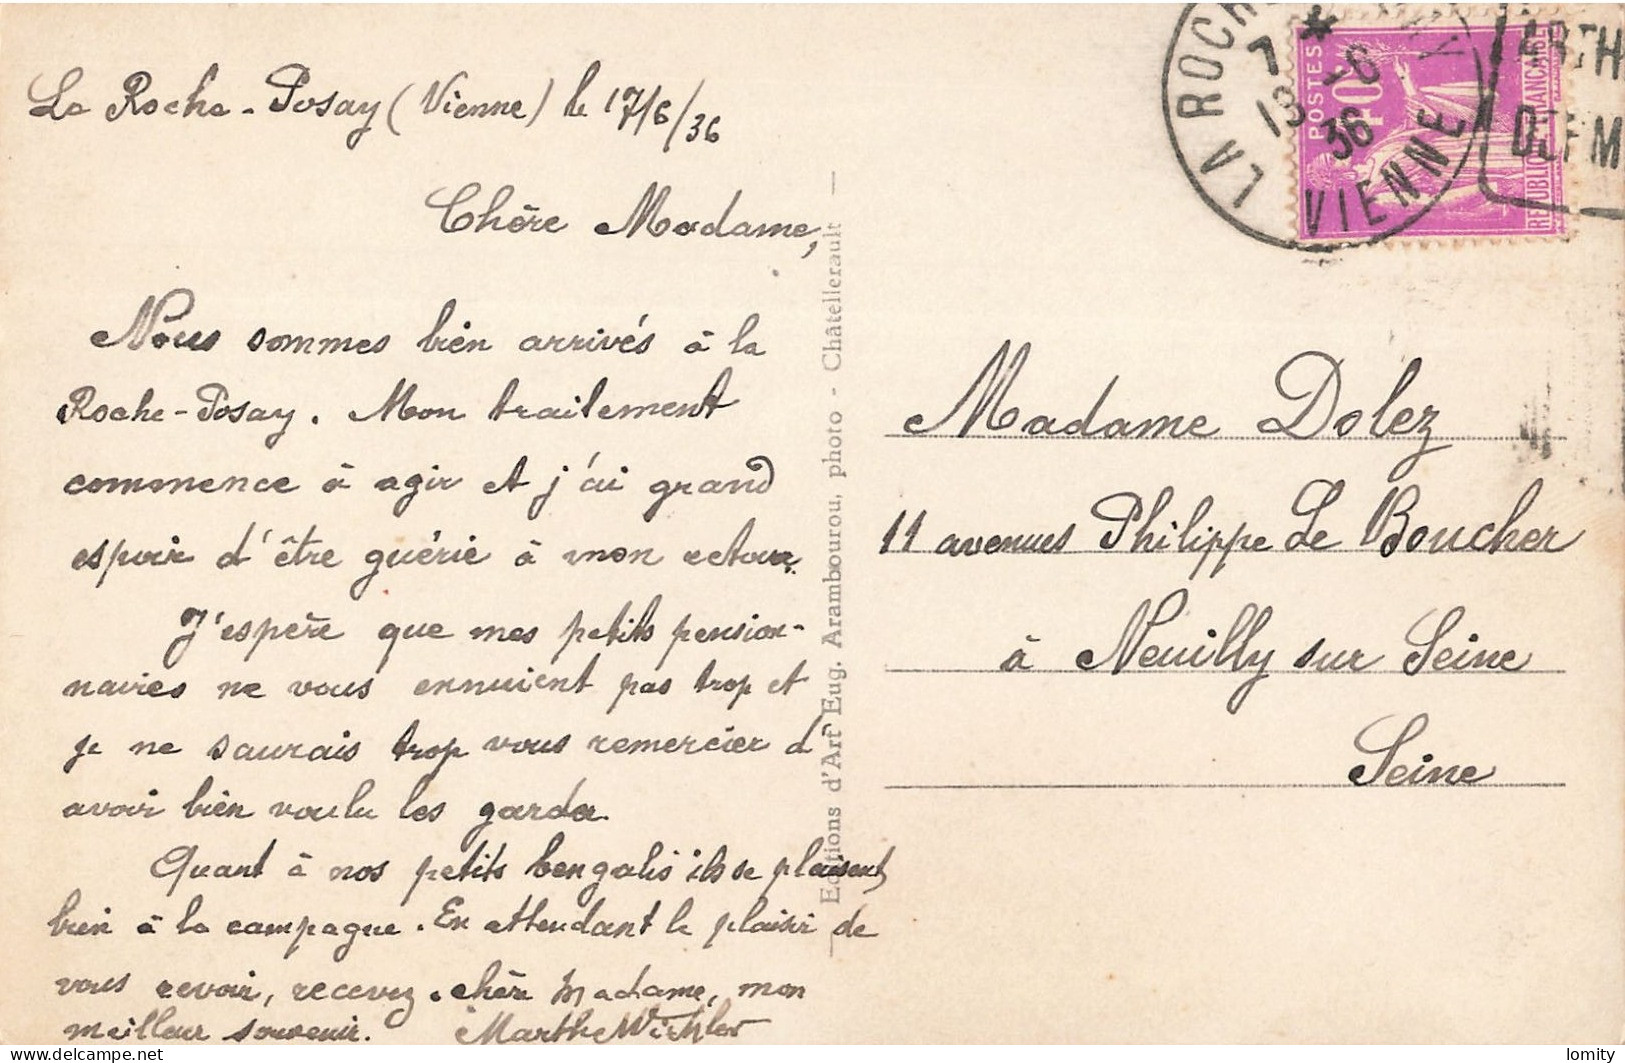 La Roche-Posay (Vienne) le 17/6/36
Chère Madame,
Nous sommes bien arrivés à la
Roche-Posay. Mon traitement
commence à agir et j'ai grand
espoir d'être guérie à mon retour.
J'espère que mes petits pension-
naires ne vous ennuient pas trop et
je ne saurais trop vous remercier d
avoir bien voulu les garder.
Quant à nos petits bengalis ils se plaisent
bien à la campagne. En attendant le plaisir de
vous revoir, recevez chère Madame, mon
meilleur souvenir. Marthe
Editions d'Art Eug. Arambourou, photo - Châtellerault
LA ROCH
VIENNE
7 *
18 -6
36
POSTES
40c
REPUBLIQUE FRANÇAISE
ARTH
DERM
Madame Dolez
11 avenues Philippe Le Boucher
à Neuilly sur Seine
Seine
delcampe.net
lomity